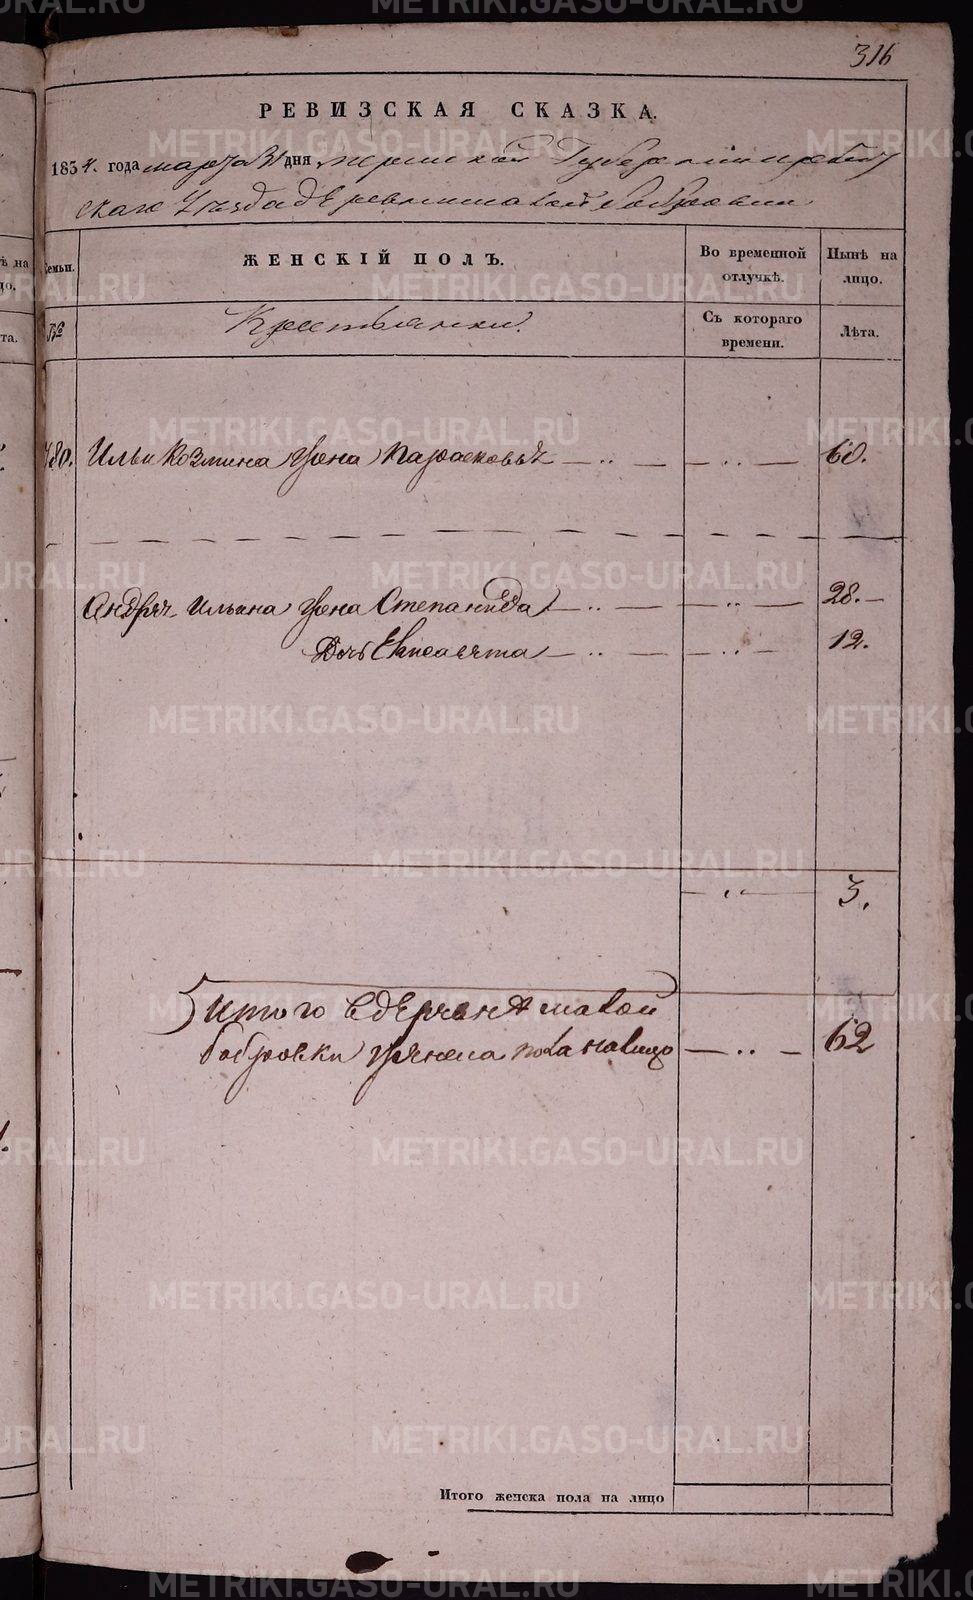 316
РЕВИЗСКАЯ СКАЗКА.
1834. года марта 31 дня пермской Губернии ирбит
скаго Уезда деревни шавой бобровки
Семьи. ЖЕНСКІЙ ПОЛЪ. Во временной отлучкѣ. Нынѣ на лицо.
№ Крестьянки. Съ котораго времени. Лѣта.
480. Ильи Козмина жена Парасковья — .. — — .. — 60.
Андрея Ильина жена Степанида — .. — — .. — 28. —
Дочь Евпсавета — .. — — .. — 12.
— .. — 3.
итого в деревне шавой
бобровки женска пола налицо — .. — 62
Итого женска пола на лицо
METRIKI.GASO-URAL.RU